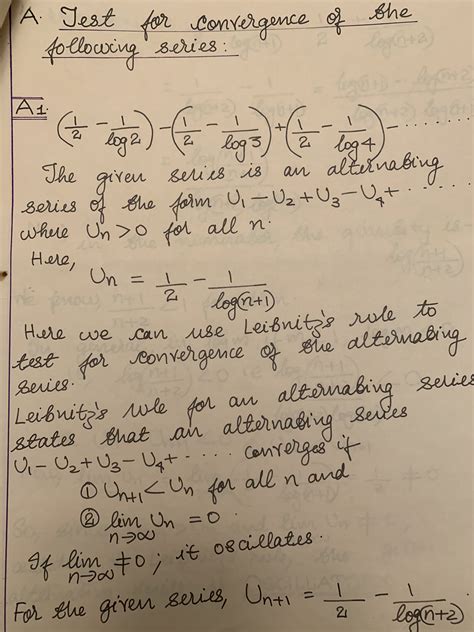 A. Test for convergence of the
following series:
A1. (1/2 - 1/log2) - (1/2 - 1/log3) + (1/2 - 1/log4) - ........
The given series is an alternating
series of the form U₁-U₂+U₃-U₄+ ......
where Un>0 for all n.
Here,
Un = 1/2 - 1/log(n+1)
Here we can use Leibnitz's rule to
test for convergence of the alternating
series.
Leibnitz's rule for an alternating series
states that an alternating series
U₁-U₂+U₃-U₄+ ...... converges if
① Un+1 < Un for all n and
② lim n→∞ Un = 0.
If lim n→∞ ≠0; it oscillates.
For the given series, Un+1 = 1/2 - 1/log(n+2)